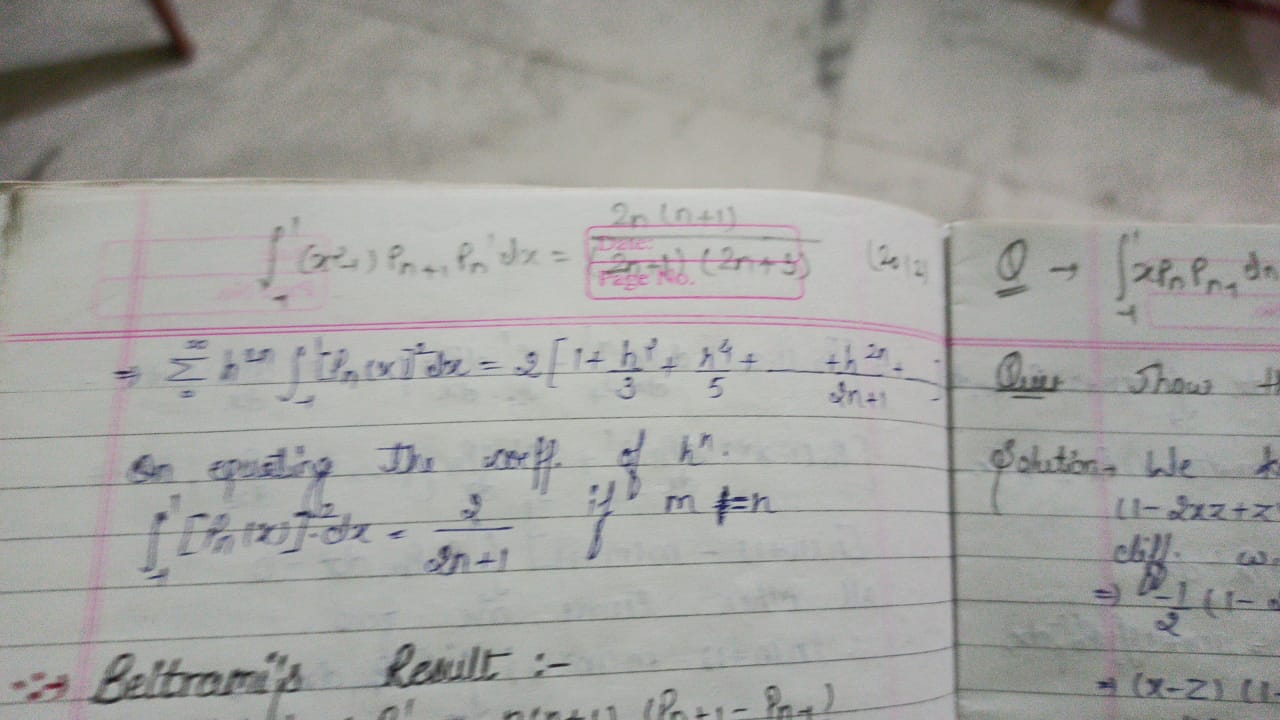 2n(n+1)
∫₋₁¹ (x²-1) Pn+1 Pn' dx = (2n+1) (2n+3) (2012)
Date:
Page No.
⇒ Σ h²ⁿ ∫₋₁¹ [Pn(x)]² dx = 2[1 + h²/3 + h⁴/5 + __ + h²ⁿ/2n+1 +
On equating the coeff. of hⁿ.
∫₋₁¹ [Pn(x)]² dx = 2/2n+1 if m = n
Beltrami's Result :-
n(n+1) (Pn+1 - Pn-1)
Q → ∫₋₁¹ xPn Pn-1 dx
Ques Show
Solution → We
(1-2xz+z
diff. w.
⇒ -1/2 (1-
⇒ (x-z) (1-